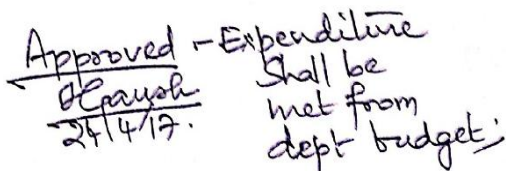 Approved - Expenditure
shall be
met from
dept budget.
24/4/17.